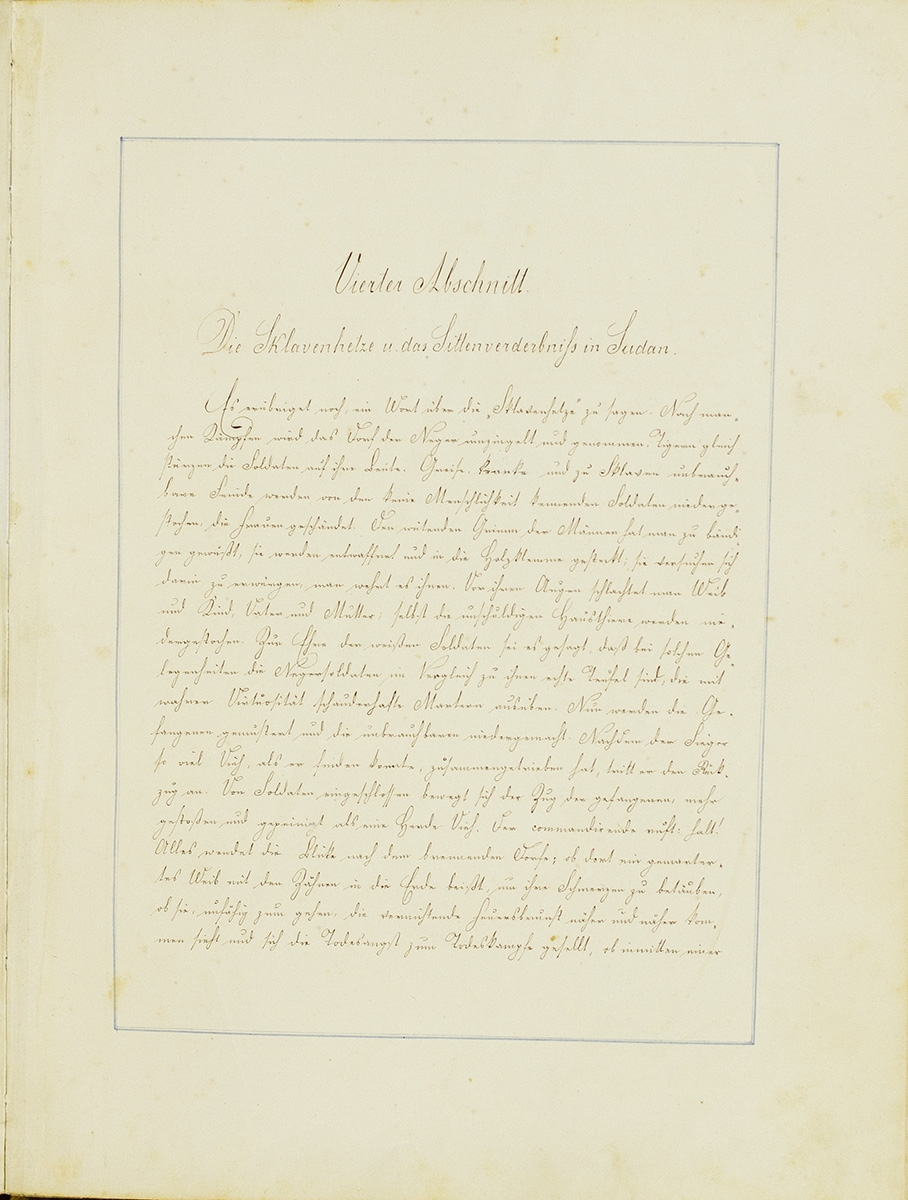 Vierter Abschnitt.
Die Sklavenhetze u. das Sittenverderbniſs in Sudan.
Es erübriget noch, ein Wort über die „Sklavenhetze" zu sagen. Nach man-
chen Kämpfen wird das Dorf der Neger umzingelt und genommen. Tigern gleich
stürzen die Soldaten auf ihre Beute. Greise, Kranke und zu Sklaven unbrauch-
bare Feinde werden von den keine Menschlichkeit kennenden Soldaten niederge-
stochen, die Frauen geschändet. Den wütenden Grimm der Männer hat man zu bändi-
gen gewußt, sie werden entwaffnet und in die Holzklemme gesteckt; sie versuchen sich
darin zu erwürgen, man wehrt es ihnen. Vor ihren Augen schlachtet man Weib
und Kind, Vater und Mutter; selbst die unschuldigen Hausthiere werden nie-
dergestochen. Zur Ehre der weißen Soldaten sei es gesagt, daß bei solchen Ge-
legenheiten die Negersoldaten im Vergleich zu ihnen echte Teufel sind, die mit
wahrer Virtuosität schauderhafte Martern ausüben. Nun werden die Ge-
fangenen gemustert und die unbrauchbaren niedergemacht. Nachdem der Sieger
so viel Vieh, als er finden konnte, zusammengetrieben hat, tritt er den Rück-
zug an. Von Soldaten eingeschlossen bewegt sich der Zug der gefangenen, mehr
gestoßen und gepeinigt als eine Herde Vieh. Der commandirende ruft: halt!
Alles wendet die Blicke nach dem brennenden Dorfe; ob dort ein gemarter-
tes Weib mit den Zähnen in die Erde beißt, um ihre Schmerzen zu betäuben,
ob sie, unfähig zum gehen, die vernichtende Feuersbrunst näher und näher kom-
men sieht und sich die Todesangst zum Todeskampfe gesellt, ob inmitten einer